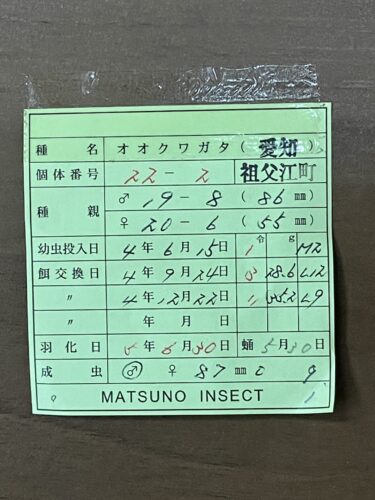 種 名 オオクワガタ ( 愛知
個体番号 22-2 祖父江町
種 親 ♂ 19-8 ( 86 ㎜)
♀ 20-6 ( 55 ㎜)
幼虫投入日 4年6月15日 1 令 g M2
餌交換日 4年9月24日 3 28.6 L12
〃 4年12月22日 35.2 L9
〃 年 月 日
羽化日 5年6月30日 蛹 5月30日
成 虫 ♂ ♀ 87 ㎜ 0 9
MATSUNO INSECT